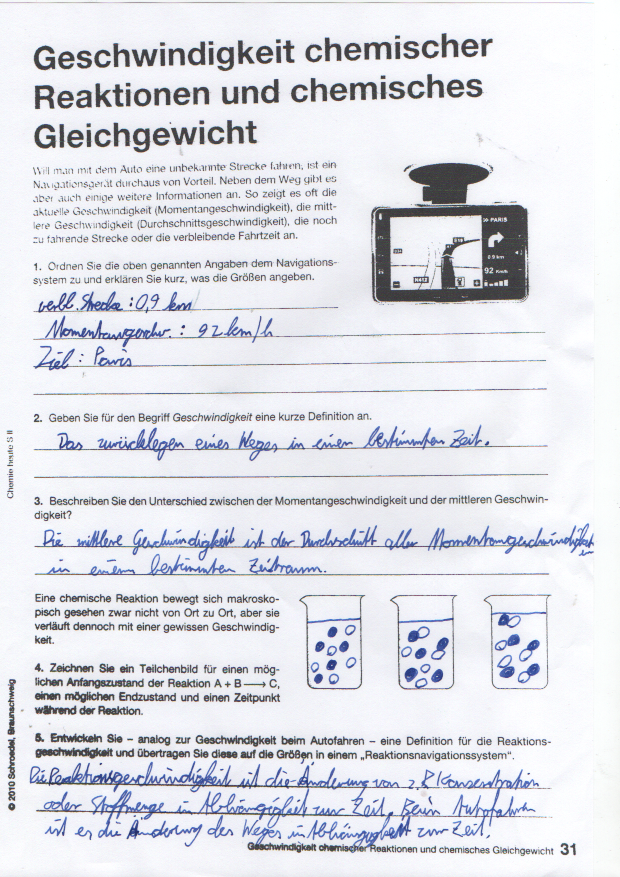 Geschwindigkeit chemischer
Reaktionen und chemisches
Gleichgewicht
Will man mit dem Auto eine unbekannte Strecke fahren, ist ein
Navigationsgerät durchaus von Vorteil. Neben dem Weg gibt es
aber auch einige weitere Informationen an. So zeigt es oft die
aktuelle Geschwindigkeit (Momentangeschwindigkeit), die mitt-
lere Geschwindigkeit (Durchschnittsgeschwindigkeit), die noch
zu fahrende Strecke oder die verbleibende Fahrtzeit an.
>> PARIS
0.9 km
92 Km/h
1. Ordnen Sie die oben genannten Angaben dem Navigations-
system zu und erklären Sie kurz, was die Größen angeben.
verbl. Strecke : 0,9 km
Momentangeschw. : 92 km/h
Ziel : Paris
2. Geben Sie für den Begriff Geschwindigkeit eine kurze Definition an.
Das zurücklegen eines Weges in einer bestimmten Zeit.
3. Beschreiben Sie den Unterschied zwischen der Momentangeschwindigkeit und der mittleren Geschwin-
digkeit?
Die mittlere Geschwindigkeit ist der Durchschnitt aller Momentangeschwindigkeiten
in einem bestimmten Zeitraum.
Eine chemische Reaktion bewegt sich makrosko-
pisch gesehen zwar nicht von Ort zu Ort, aber sie
verläuft dennoch mit einer gewissen Geschwindig-
keit.
4. Zeichnen Sie ein Teilchenbild für einen mög-
lichen Anfangszustand der Reaktion A + B ⟶ C,
einen möglichen Endzustand und einen Zeitpunkt
während der Reaktion.
5. Entwickeln Sie – analog zur Geschwindigkeit beim Autofahren – eine Definition für die Reaktions-
geschwindigkeit und übertragen Sie diese auf die Größen in einem „Reaktionsnavigationssystem“.
Die Reaktionsgeschwindigkeit ist die Änderung von z.B. Konzentration
oder Stoffmenge in Abhängigkeit zur Zeit. Beim Autofahren
ist es die Änderung des Weges in Abhängigkeit zur Zeit.
Geschwindigkeit chemischer Reaktionen und chemisches Gleichgewicht 31
Chemie heute S II
© 2010 Schroedel, Braunschweig